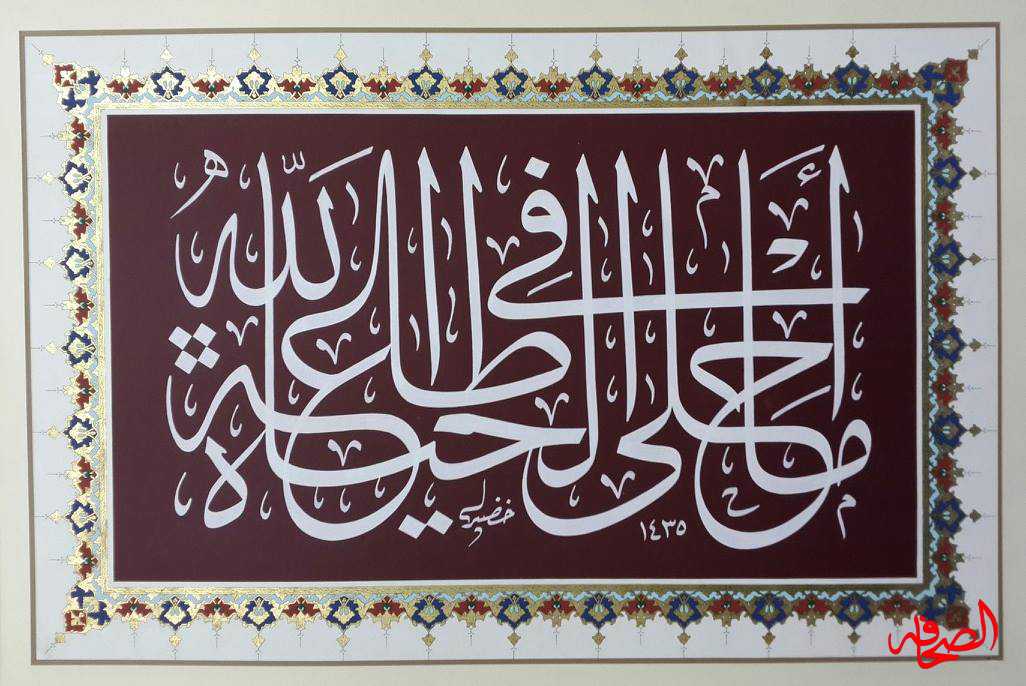 ما أحلى الحياة في طاعة الله
١٤٣٥
خضير